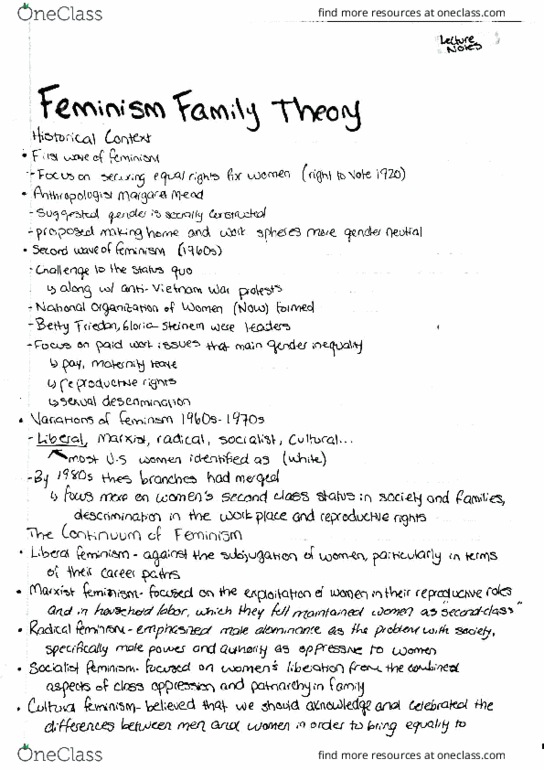 OneClass
find more resources at oneclass.com
Lecture
Notes
Feminism Family Theory
Historical Context
• First wave of feminism
- Focus on securing equal rights for women (right to vote 1920)
• Anthropologist Margaret Mead
- Suggested gender is socially constructed
- proposed making home and work spheres more gender neutral
• Second wave of feminism (1960s)
- Challenge to the status quo
↳ along w/ anti-Vietnam war protests
- National Organization of Women (NOW) formed
- Betty Friedan, Gloria Steinem were leaders
- Focus on paid work issues that main gender inequality
↳ pay, maternity leave
↳ reproductive rights
↳ sexual descrimination
• Variations of feminism 1960s-1970s
- Liberal, Marxist, radical, socialist, Cultural...
most U.S women identified as (white)
- By 1980s thes branches had merged
↳ focus more on women's second class status in society and families,
descrimination in the work place and reproductive rights
The Continuum of Feminism
• Liberal feminism - against the subjugation of women, particularly in terms
of their career paths
• Marxist feminism - focused on the exploitation of women in their reproductive roles
and in household labor, which they felt maintained women as "second-class"
• Radical feminism - emphasized male dominance as the problem with society,
specifically male power and authority as oppressive to women
• Socialist feminism - focused on women's liberation from the combined
aspects of class oppression and patriarchy in family
• Cultural feminism - believed that we should acknowledge and celebrated the
differences between men and women in order to bring equality to
OneClass
find more resources at oneclass.com